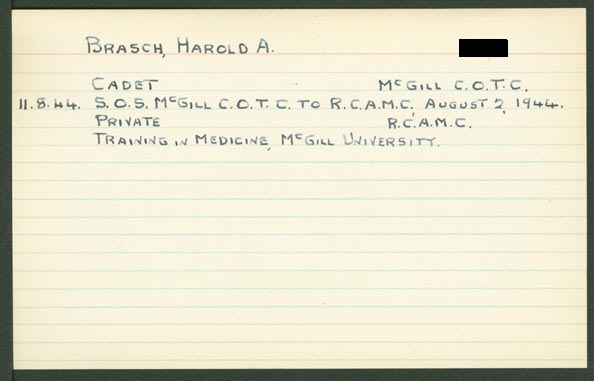 BRASCH, HAROLD A.
CADET McGILL C.O.T.C.
11.8.44. S.O.S. McGILL C.O.T.C. TO R.C.A.M.C. AUGUST 2, 1944.
PRIVATE R.C.A.M.C.
TRAINING IN MEDICINE, McGILL UNIVERSITY.